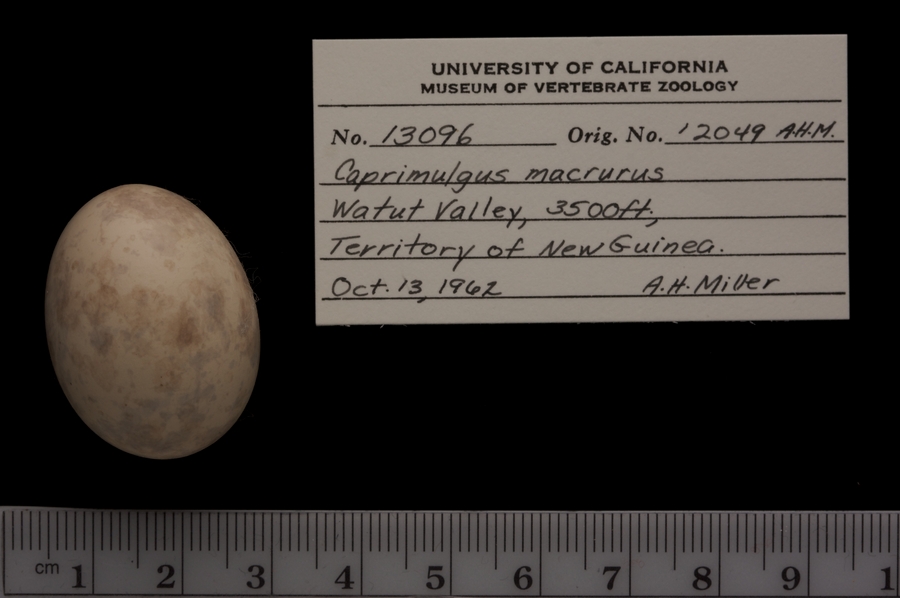 UNIVERSITY OF CALIFORNIA
MUSEUM OF VERTEBRATE ZOOLOGY
No. 13096 Orig. No. '2049 A.H.M.
Caprimulgus macrurus
Watut Valley, 3500ft,
Territory of New Guinea.
Oct. 13, 1962 A.H. Miller
cm 1 2 3 4 5 6 7 8 9 1